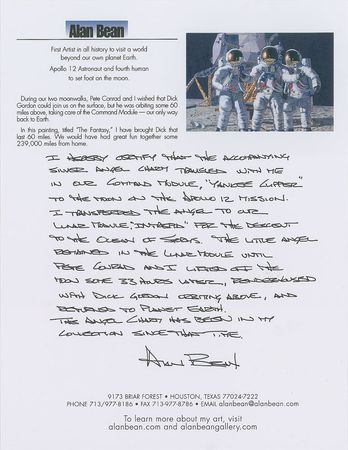 Alan Bean
First Artist in all history to visit a world
beyond our own planet Earth.
Apollo 12 Astronaut and fourth human
to set foot on the moon.
During our two moonwalks, Pete Conrad and I wished that Dick
Gordon could join us on the surface, but he was orbiting some 60
miles above, taking care of the Command Module — our only way
back to Earth.
In this painting, titled "The Fantasy," I have brought Dick that
last 60 miles. We would have had great fun together some
239,000 miles from home.
I HEREBY CERTIFY THAT THE ACCOMPANYING
SILVER ANGEL CHARM TRAVELED WITH ME
IN OUR COMMAND MODULE, "YANKEE CLIPPER"
TO THE MOON ON THE APOLLO 12 MISSION.
I TRANSFERRED THE ANGEL TO OUR
LUNAR MODULE "INTREPID" FOR THE DESCENT
TO THE OCEAN OF STORMS. THE LITTLE ANGEL
REMAINED IN THE LUNAR MODULE UNTIL
PETE CONRAD AND I LIFTED OFF THE
MOON SOME 33 HOURS LATER, RENDEZVOUSED
WITH DICK GORDON ORBITING ABOVE, AND
RETURNED TO PLANET EARTH.
THE ANGEL CHARM HAS BEEN IN MY
COLLECTION SINCE THAT TIME.
ALAN BEAN
9173 BRIAR FOREST • HOUSTON, TEXAS 77024-7222
PHONE 713/977-8186 • FAX 713-977-8786 • EMAIL alanbean@alanbean.com
To learn more about my art, visit
alanbean.com and alanbeangallery.com